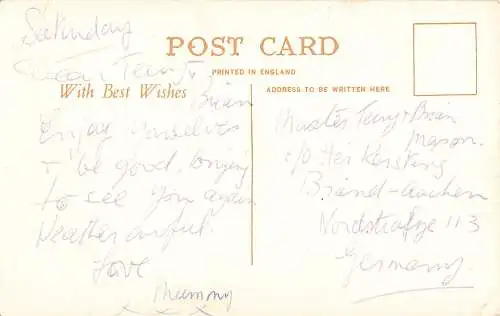 Saturday
POST CARD
PRINTED IN ENGLAND
With Best Wishes
ADDRESS TO BE WRITTEN HERE
Dear Terry +
Brian
Enjoy yourselves
+ be good, longing
to see you again
Weather awful.
Love
Mummy
x x x
Master Terry + Brian
Mason.
c/o Herr Kersting
Brand-Aachen
Nordstraße 113
Germany.